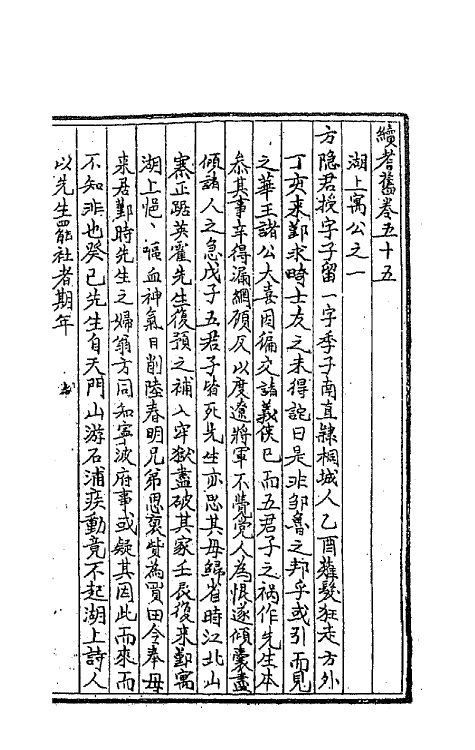 續耆舊卷五十五
湖上寓公之一
方隐君授字子留一字季子南直隸桐城人乙酉薙髮狂走方外
丁亥来鄞求畸士友之未得詫曰是非邹魯之邦乎或引而見
之華王諸公大喜因徧交諸義俠已而五君子之祸作先生本
叅其事幸得漏網顧仄以度遼將軍不覺党人為恨遂傾囊盡
傾諸人之急戊子五君子皆死先生亦思其母歸省時江北山
寨正踞英霍先生復預之補入牢獄盡破其家壬辰復来鄞寓
湖上悒、嘔血神氣日削陸春明兄弟思裒赀為買田令奉母
来居鄞時先生之婦翁方同知寧波府事或疑其因此而來而
不知非也癸已先生自天門山游石浦疾動竟不起湖上詩人
以先生罷社者期年